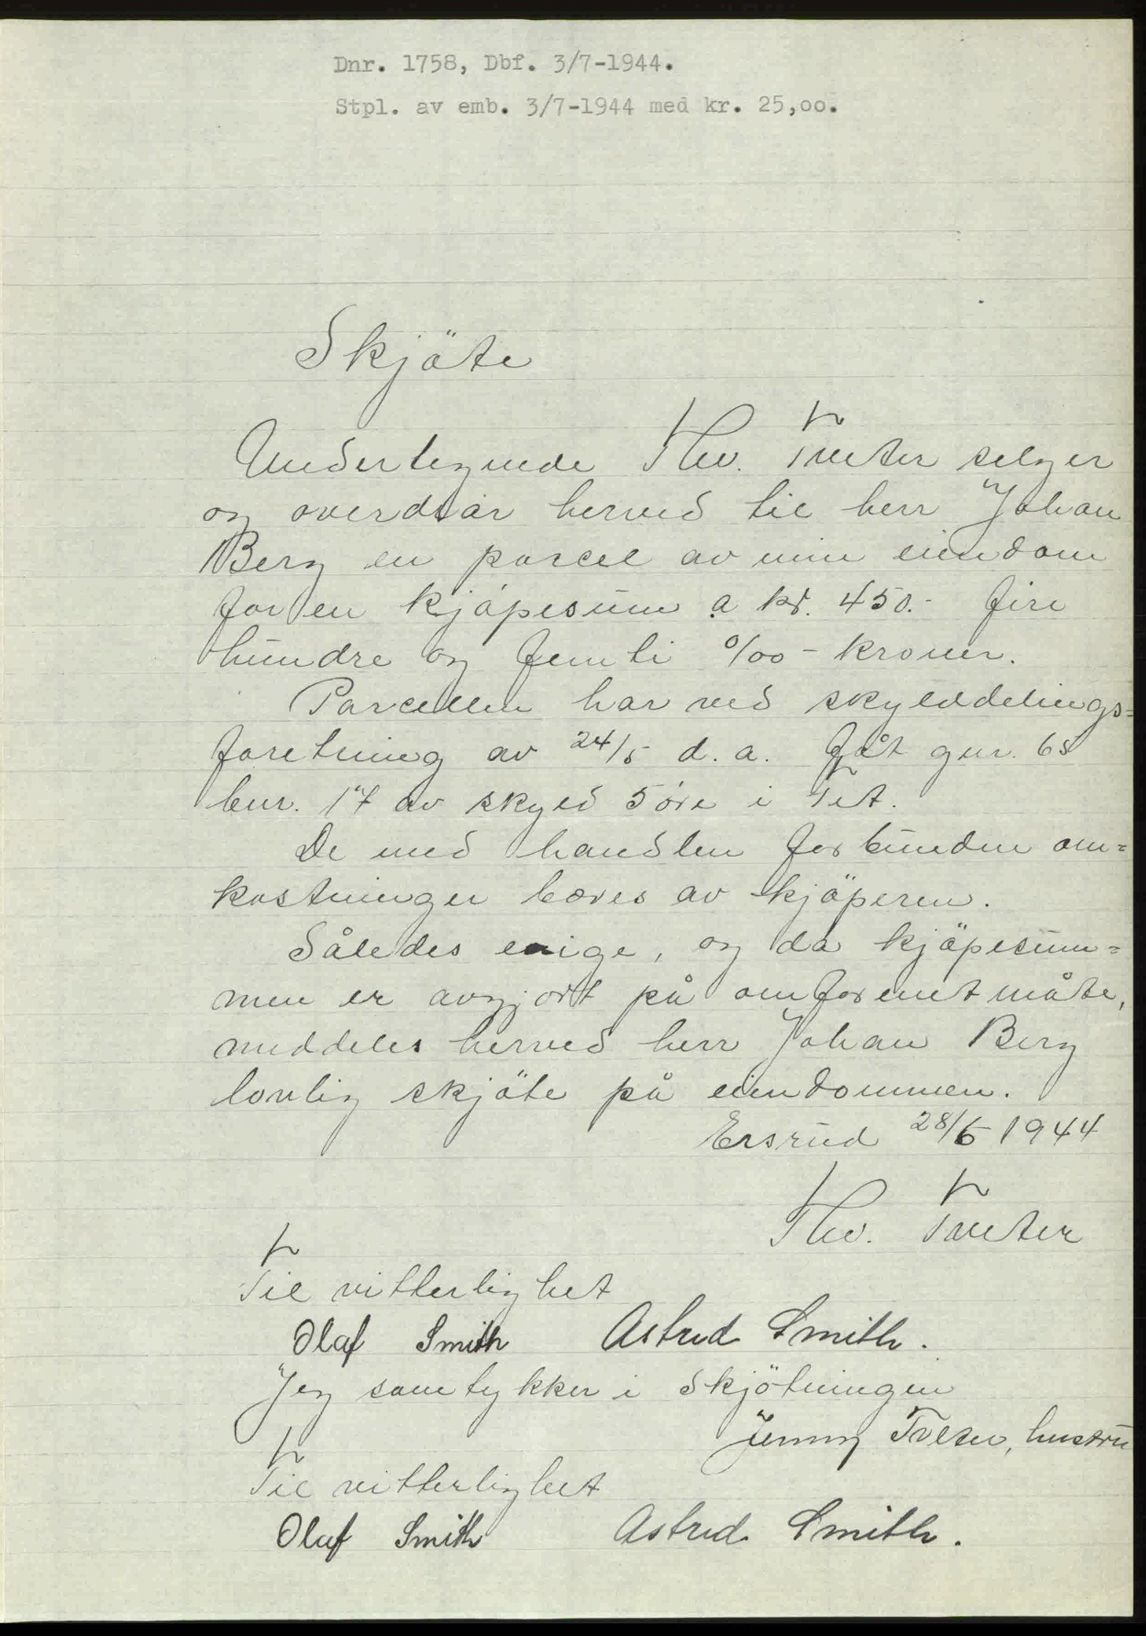 Dnr. 1758, Dbf. 3/7-1944.
Stpl. av emb. 3/7-1944 med kr. 25,oo.
Skjöte
Undertegnede Thv. Tveter selger
og overdrar herved til herr Johan
Berg en parcel av min eiendom
for en kjöpesum a kr. 450.- fire
hundre og femti o/oo - kroner.
Parcellen har ved skylddelings=
foretning av 24/5 d. a. fåt gnr. 65
bnr. 17 av skyld 5 øre i Fet.
De med handlen forbunden om=
kostninger bæres av kjöperen.
Således enige, og da kjöpesum=
men er avgjort på omforenet måte,
meddeles herved herr Johan Berg
lovlig skjöte på eiendommen.
Ersrud 28/6 1944
Thv. Tveter
Til vitterlighet
Olaf Smith Astrid Smith.
Jeg samtykker i skjötningen
Jenny Tveter, hustru
Til vitterlighet
Olaf Smith Astrid Smith.